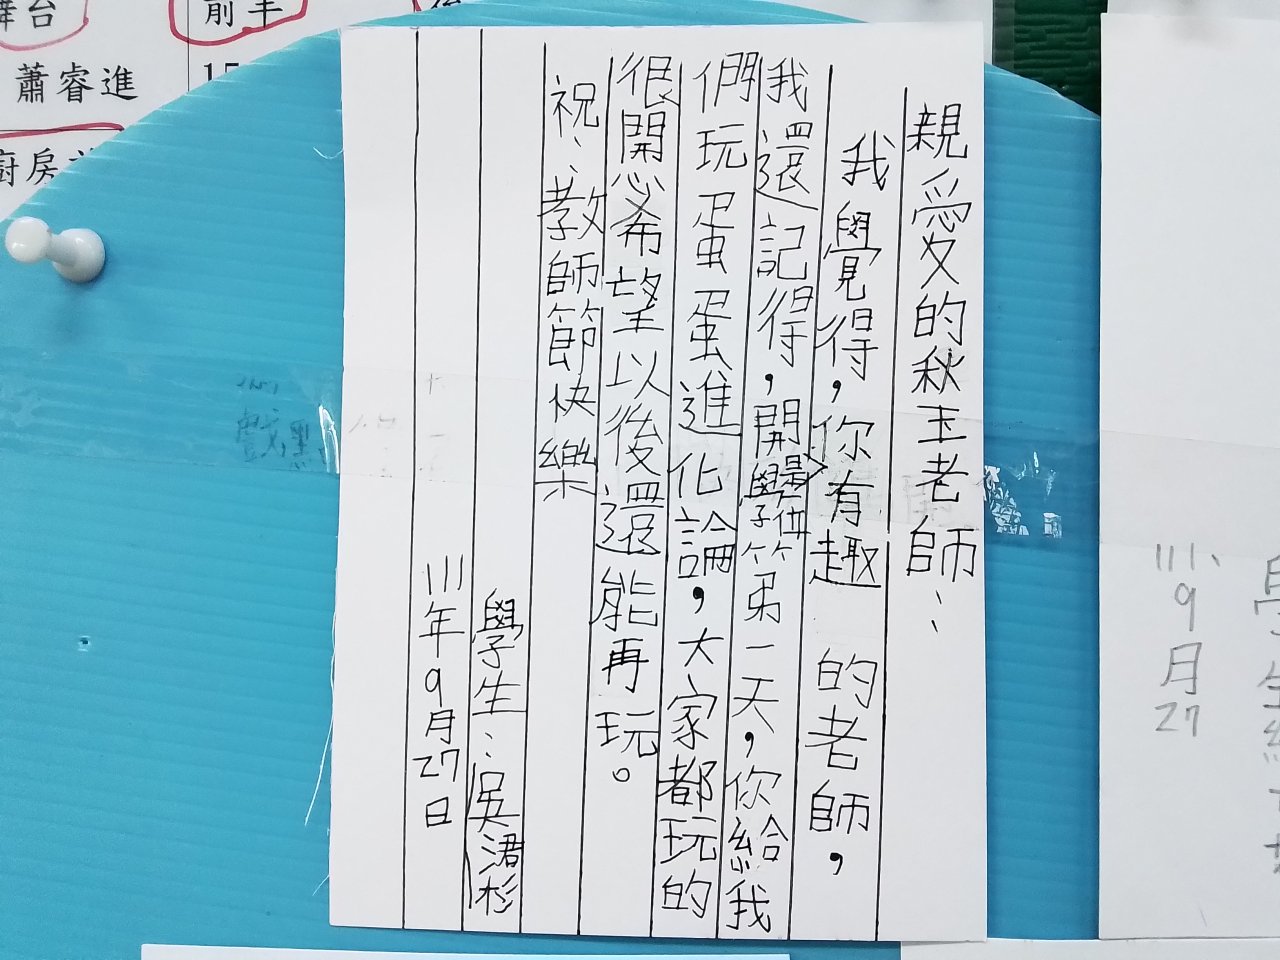 親愛的秋玉老師：
我覺得，你是一位有趣的老師，
我還記得，開學第一天，你給我
們玩蛋蛋進化論，大家都玩的
很開心希望以後還能再玩。
祝：教師節快樂
學生：吳涒杉
111年9月27日
111、9月27
蕭睿進
15
廚房